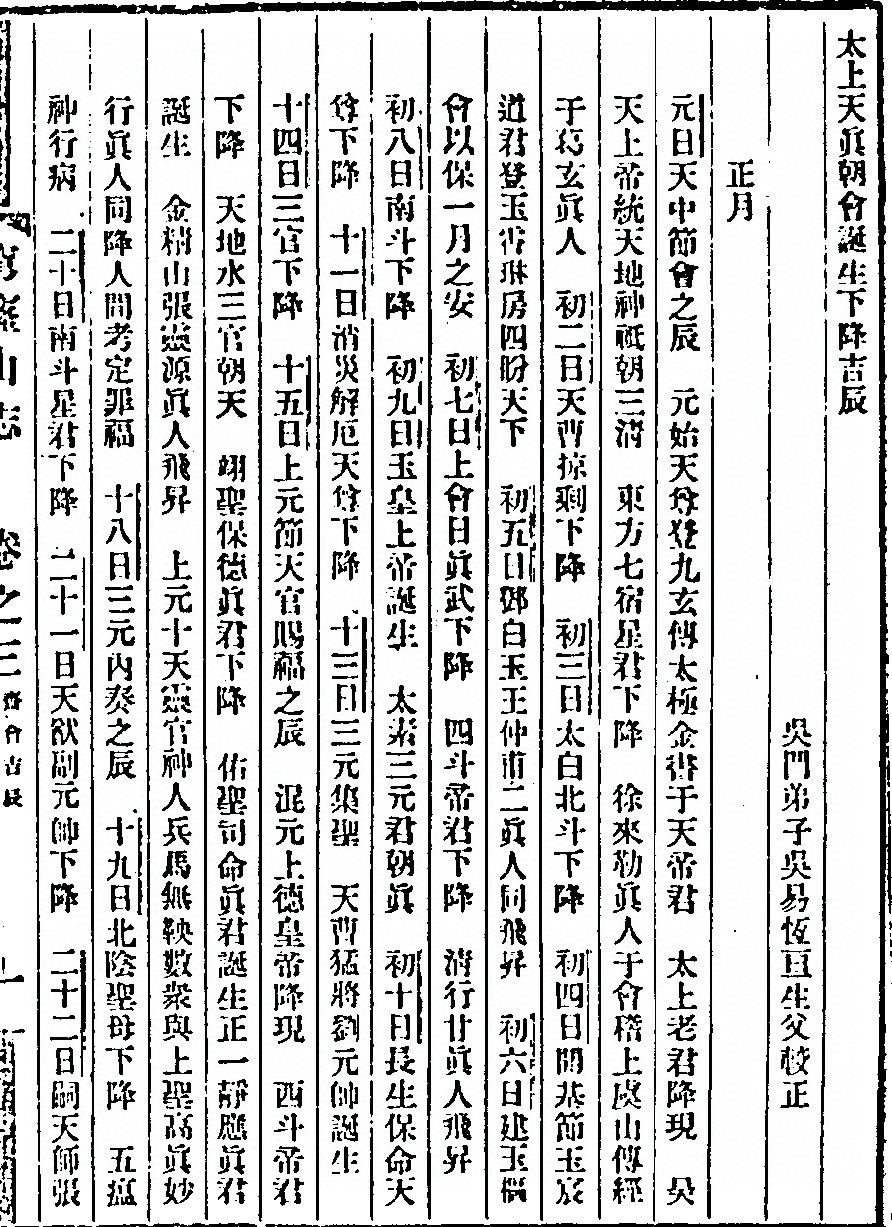 太上天眞朝會誕生下降吉辰
吳門弟子吳易恆亘生父校正
正月
元日天中節會之辰　元始天尊登九玄傳太極金書于天帝君　太上老君降現　昊
天上帝統天地神祇朝三淸　東方七宿星君下降　徐來勒眞人于會稽上虞山傳經
于葛玄眞人　初二日天曹掠剩下降　初三日太白北斗下降　初四日開基節玉宸
道君登玉霄琳房四盼天下　初五日鄧白玉王仲甫二眞人同飛昇　初六日建玉樞
會以保一月之安　初七日上會日眞武下降　四斗帝君下降　淸行廿眞人飛昇
初八日南斗下降　初九日玉皇上帝誕生　太素三元君朝眞　初十日長生保命天
尊下降　十一日消災解厄天尊下降　十三日三元集聖　天曹猛將劉元帥誕生
十四日三官下降　十五日上元節天官賜福之辰　混元上德皇帝降現　西斗帝君
下降　天地水三官朝天　翊聖保德眞君下降　佑聖司命眞君誕生正一靜應眞君
誕生　金精山張靈源眞人飛昇　上元十天靈官神人兵馬無鞅數衆與上聖高眞妙
行眞人同降人間考定罪福　十八日三元內奏之辰　十九日北陰聖母下降　五瘟
神行病　二十日南斗星君下降　二十一日天猷副元帥下降　二十二日嗣天師張
山志　卷之三　齋會吉辰